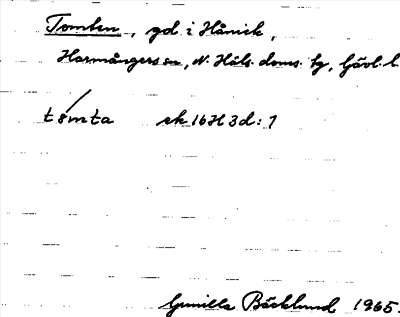 Tomten, gd. i Hånick,
Harmångers sn, N. Häls. doms. hg, Gävl. l.
tömta ek 16H3d:1
Gunilla Bäcklund 1965.